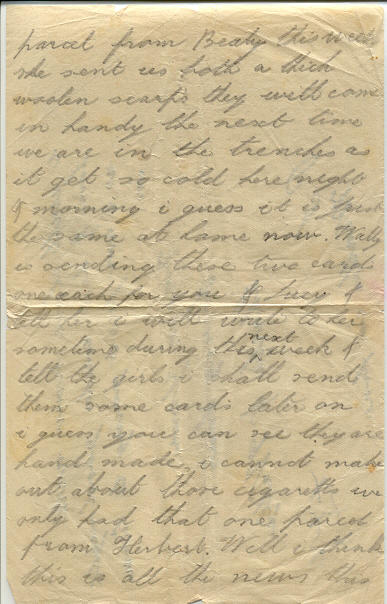 parcel from Beaty this week
she sent us both a thick
woolen scarfs they will come
in handy the next time
we are in the trenches as
it get so cold here night
& morning i guess it is just
the same at home now. Wally
is sending these two cards
one each for you &
tell her i will write to her
sometime during this next week &
tell the girls i shall send
them some cards later on
i guess you can see they are
hand made, i cannot make
out about those cigaretts we
only had that one parcel
from Herbert. Well i think
this is all the news this